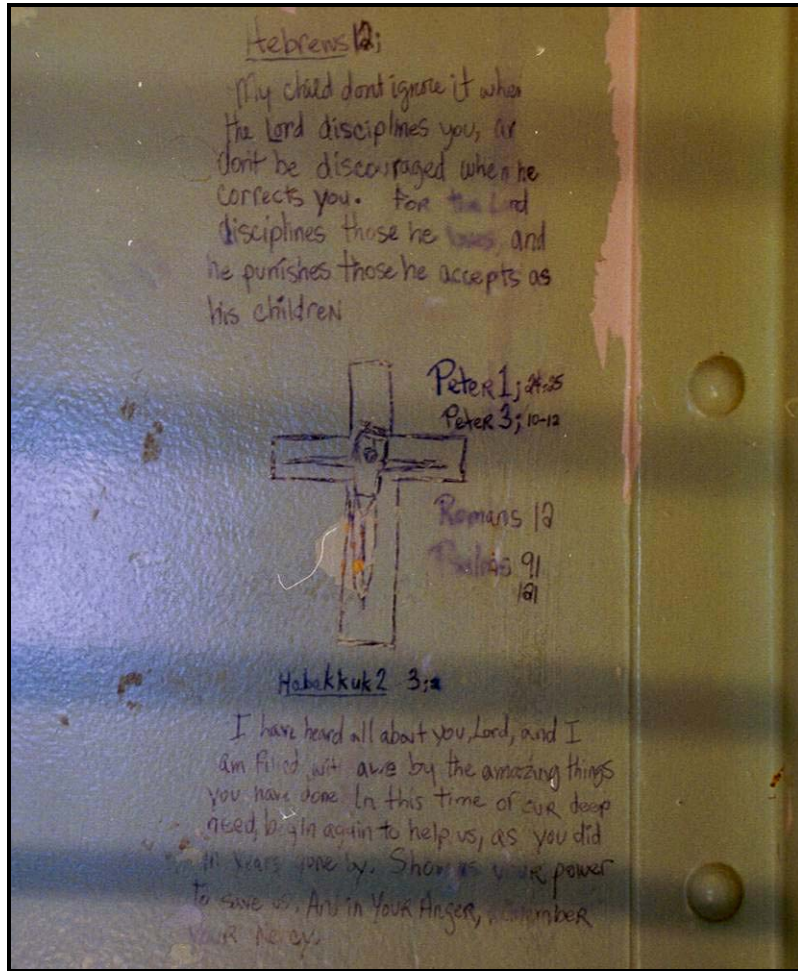 Hebrews 12;
My child dont ignore it when
the Lord disciplines you, or
don't be discouraged when he
corrects you. For the Lord
disciplines those he loves, and
he punishes those he accepts as
his children
Peter 1; 24-25
Peter 3; 10-12
Romans 12
Psalms 91
121
Habakkuk 2 3;2
I have heard all about you, Lord, and I
am filled with awe by the amazing things
you have done In this time of our deep
need, begin again to help us, as you did
in years gone by. Show us your power
to save us. And in Your Anger, remember
Your Mercy.